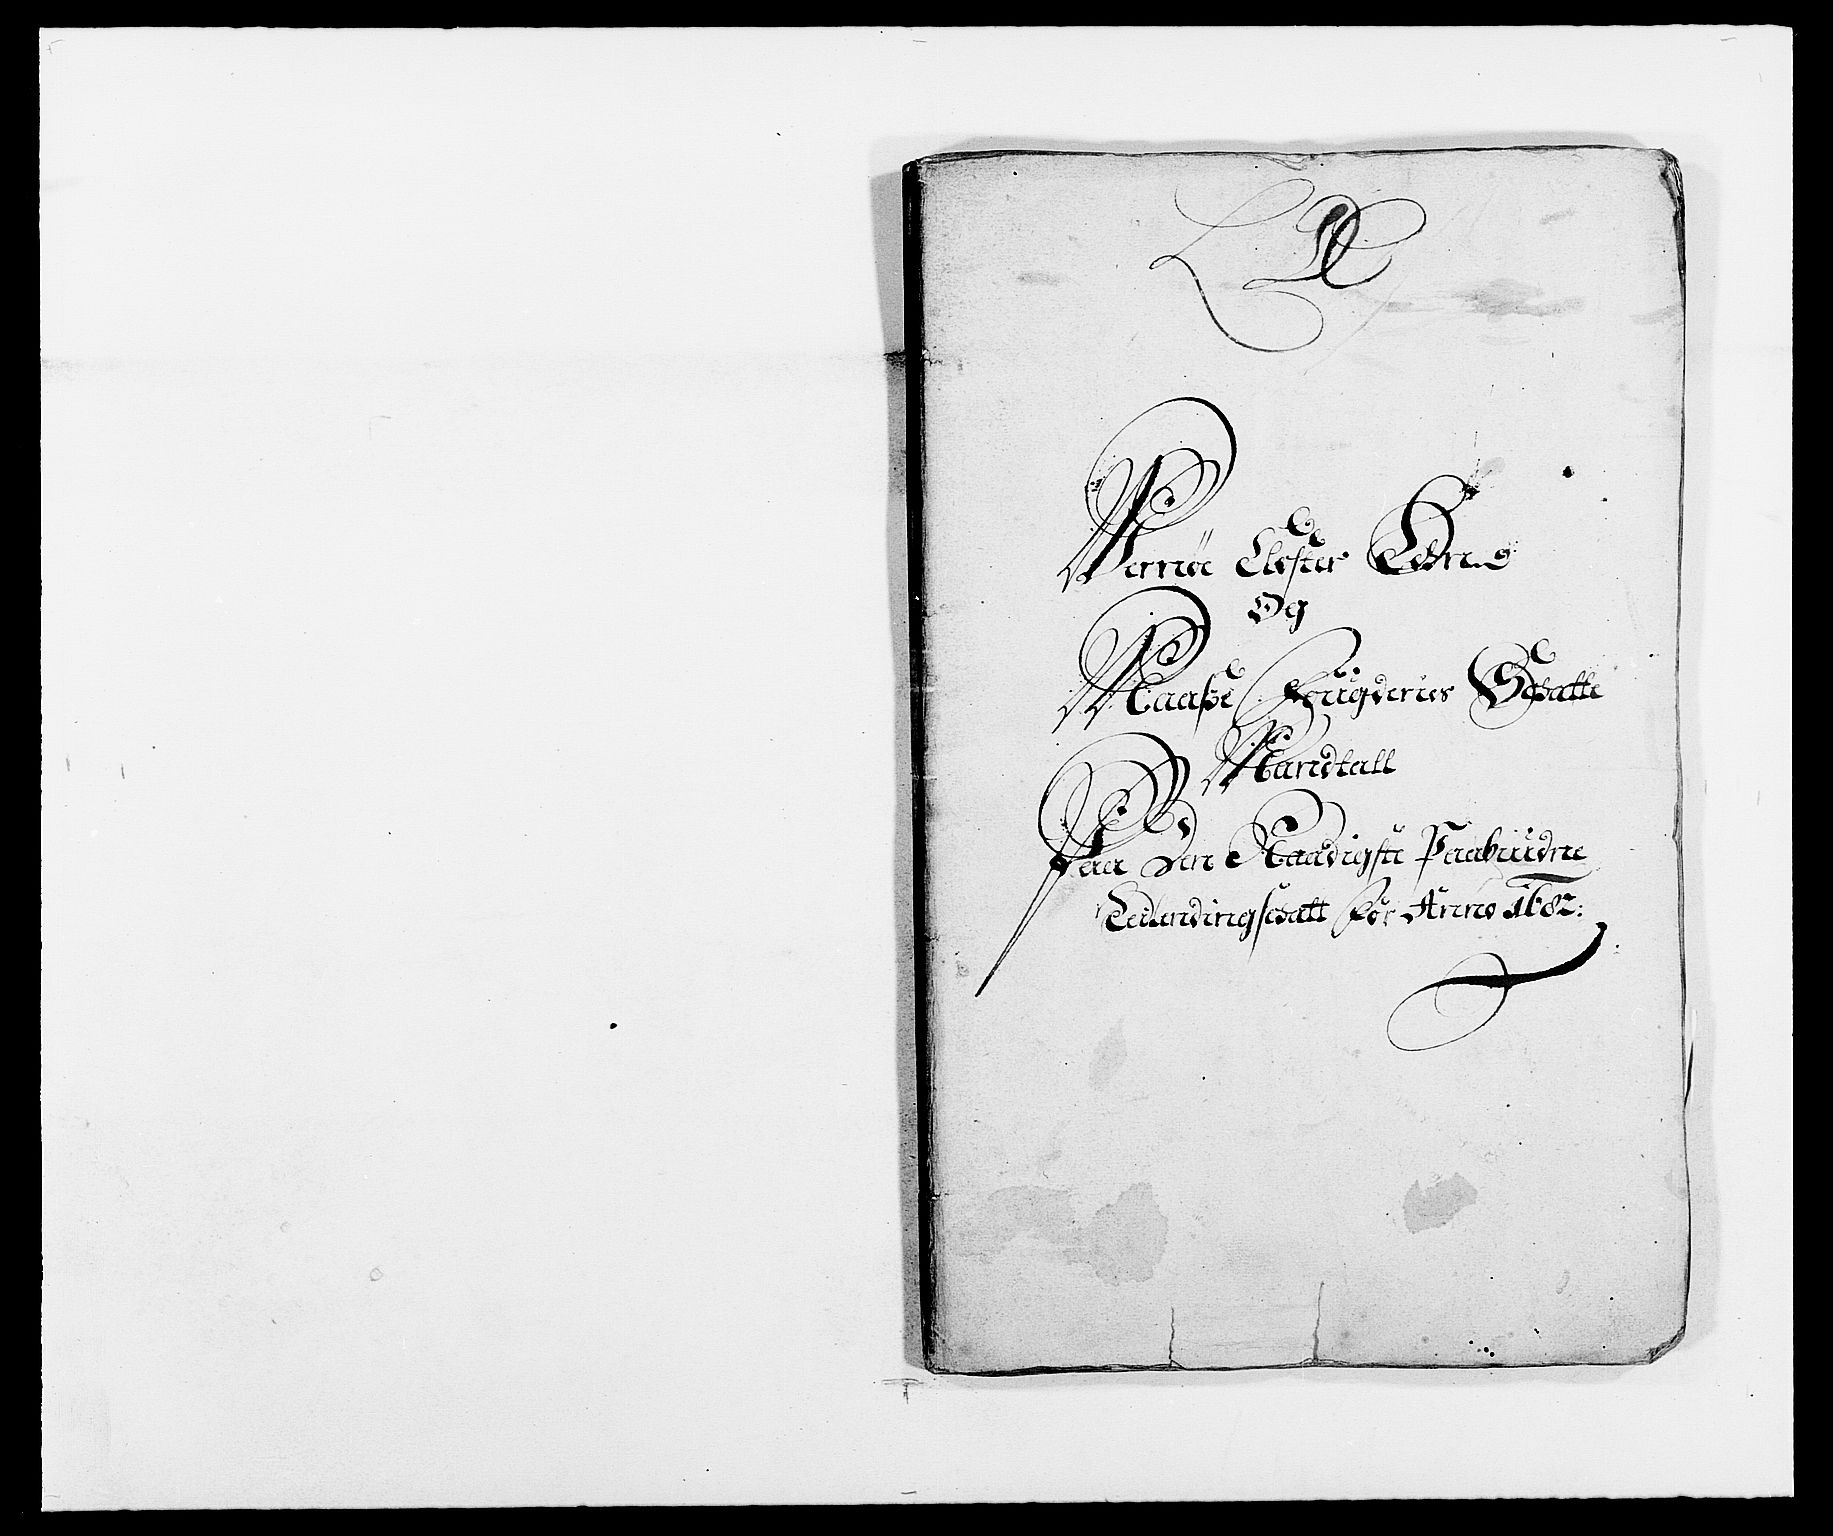 Werne Closter Lehns
Og
Maaße Fougderies Schatte
Mandtall
Paa Den Naadigste Paabudne
Leilendingschatt For Anno 1682: